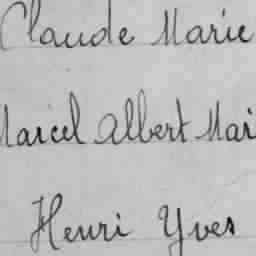 Claude Marie
Marcel Albert Mar
Henri Yves